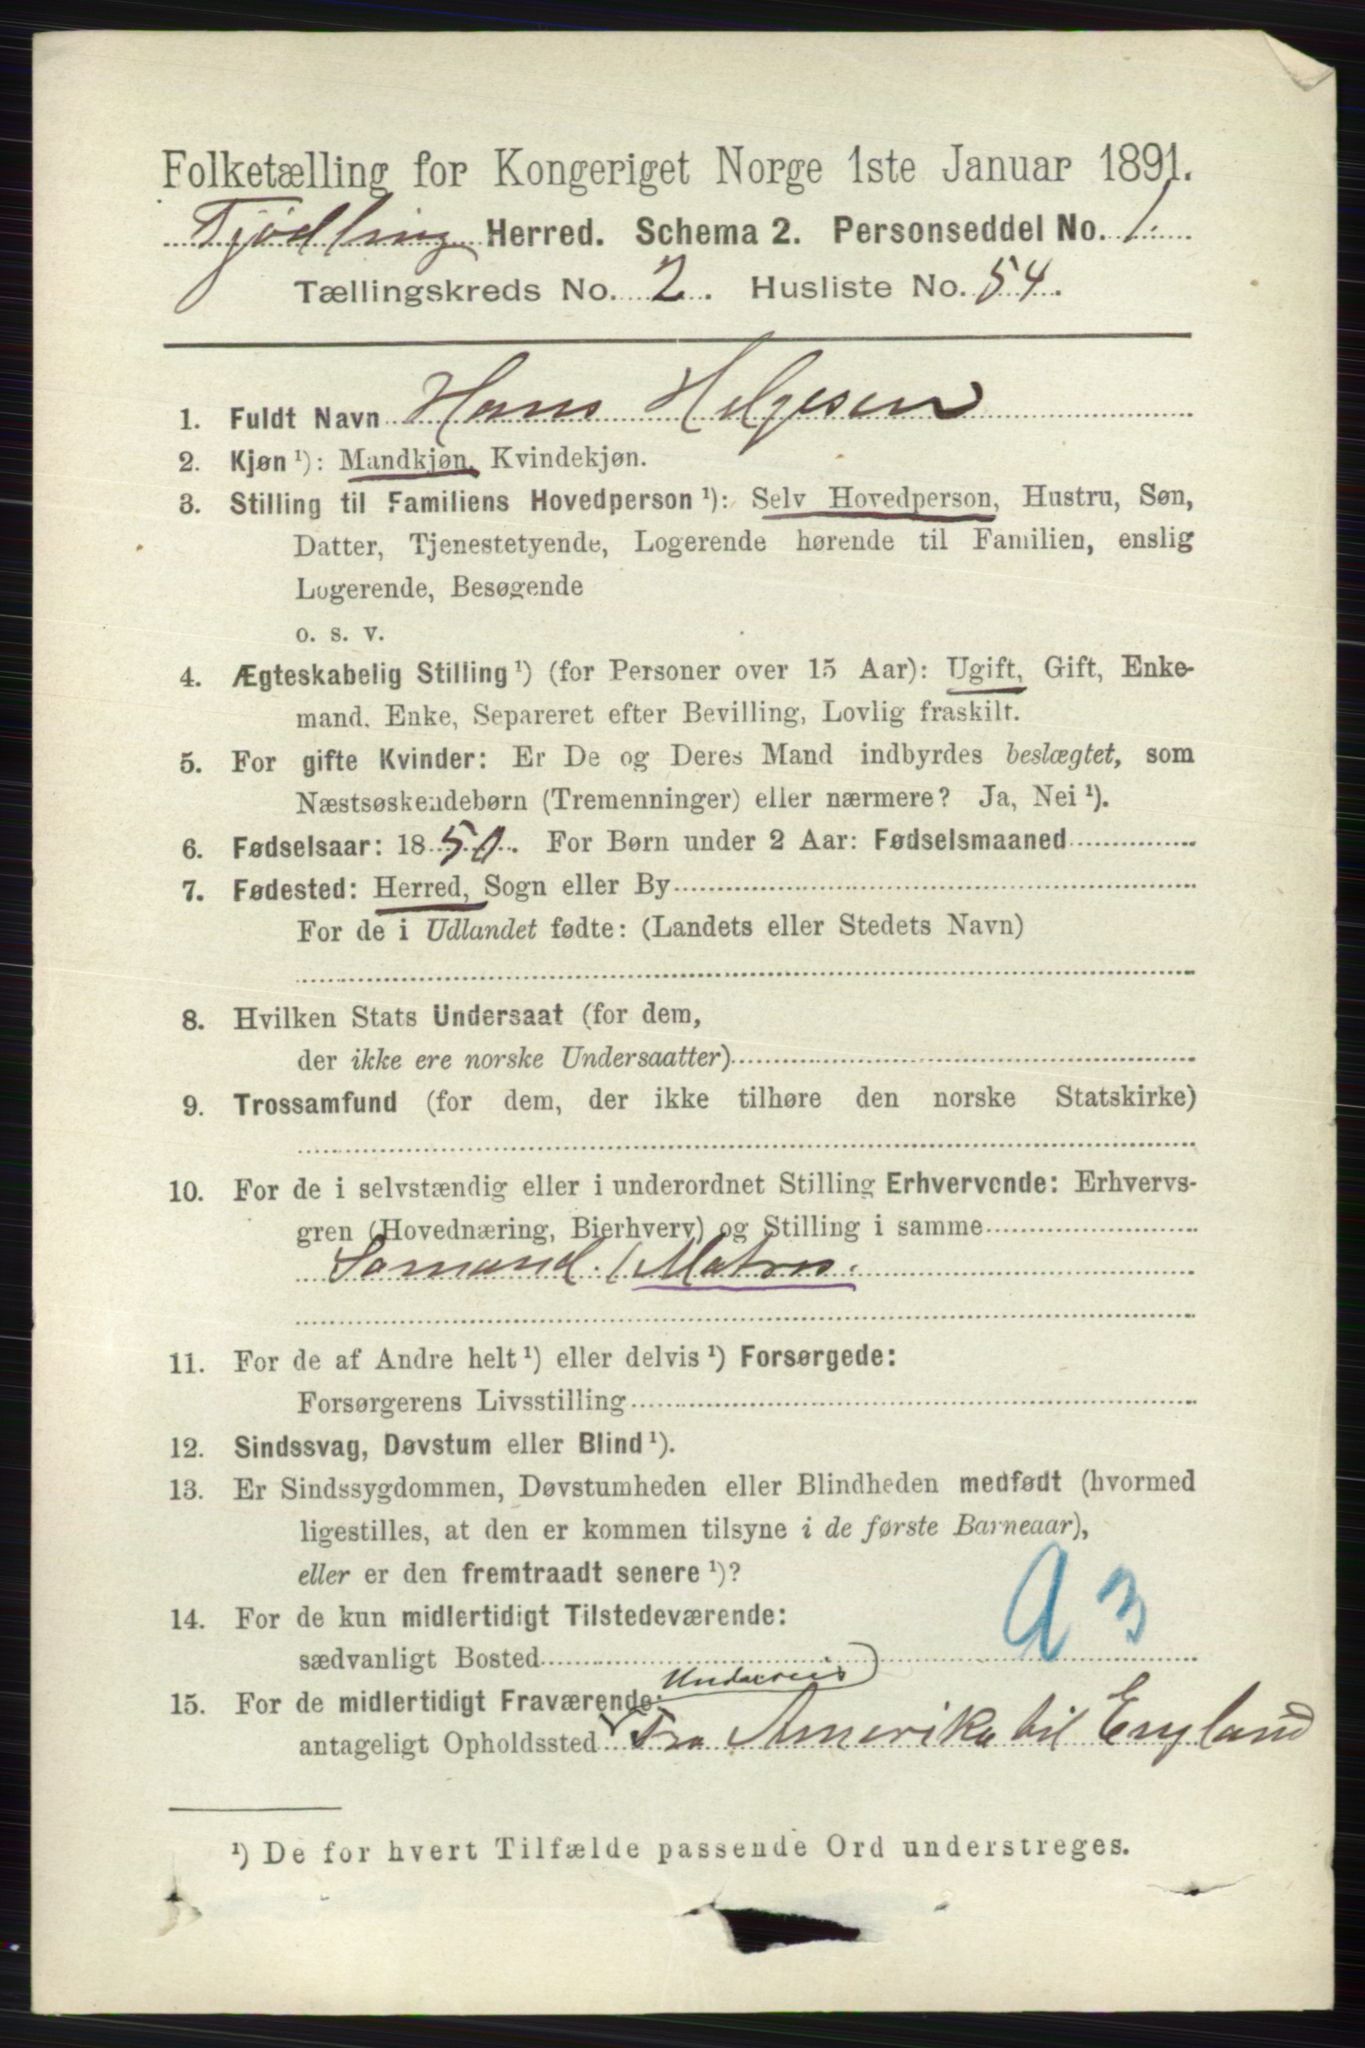 Folketælling for Kongeriget Norge 1ste Januar 1891.
Tjødling Herred. Schema 2. Personseddel No. 1.
Tællingskreds No. 2. Husliste No. 54.
1. Fuldt Navn Hans Helgesen
2. Kjøn ¹): Mandkjøn, Kvindekjøn.
3. Stilling til Familiens Hovedperson ¹): Selv Hovedperson, Hustru, Søn,
Datter, Tjenestetyende, Logerende hørende til Familien, enslig
Logerende, Besøgende
o. s. v.
4. Ægteskabelig Stilling ¹) (for Personer over 15 Aar): Ugift, Gift, Enke-
mand, Enke, Separeret efter Bevilling, Lovlig fraskilt.
5. For gifte Kvinder: Er De og Deres Mand indbyrdes beslægtet, som
Næstsøskendebørn (Tremenninger) eller nærmere? Ja, Nei ¹).
6. Fødselsaar: 1850. For Børn under 2 Aar: Fødselsmaaned
7. Fødested: Herred, Sogn eller By
For de i Udlandet fødte: (Landets eller Stedets Navn)
8. Hvilken Stats Undersaat (for dem,
der ikke ere norske Undersaatter)
9. Trossamfund (for dem, der ikke tilhøre den norske Statskirke)
10. For de i selvstændig eller i underordnet Stilling Erhvervende: Erhvervs-
gren (Hovednæring, Bierhverv) og Stilling i samme
Sømand. (Matros.
11. For de af Andre helt ¹) eller delvis ¹) Forsørgede:
Forsørgerens Livsstilling
12. Sindssvag, Døvstum eller Blind ¹).
13. Er Sindssygdommen, Døvstumheden eller Blindheden medfødt (hvormed
ligestilles, at den er kommen tilsyne i de første Barneaar),
eller er den fremtraadt senere ¹)?
14. For de kun midlertidigt Tilstedeværende:
sædvanligt Bosted
a 3
15. For de midlertidigt Fraværende:
Underveis
antageligt Opholdssted Fra Amerika til England
¹) De for hvert Tilfælde passende Ord understreges.